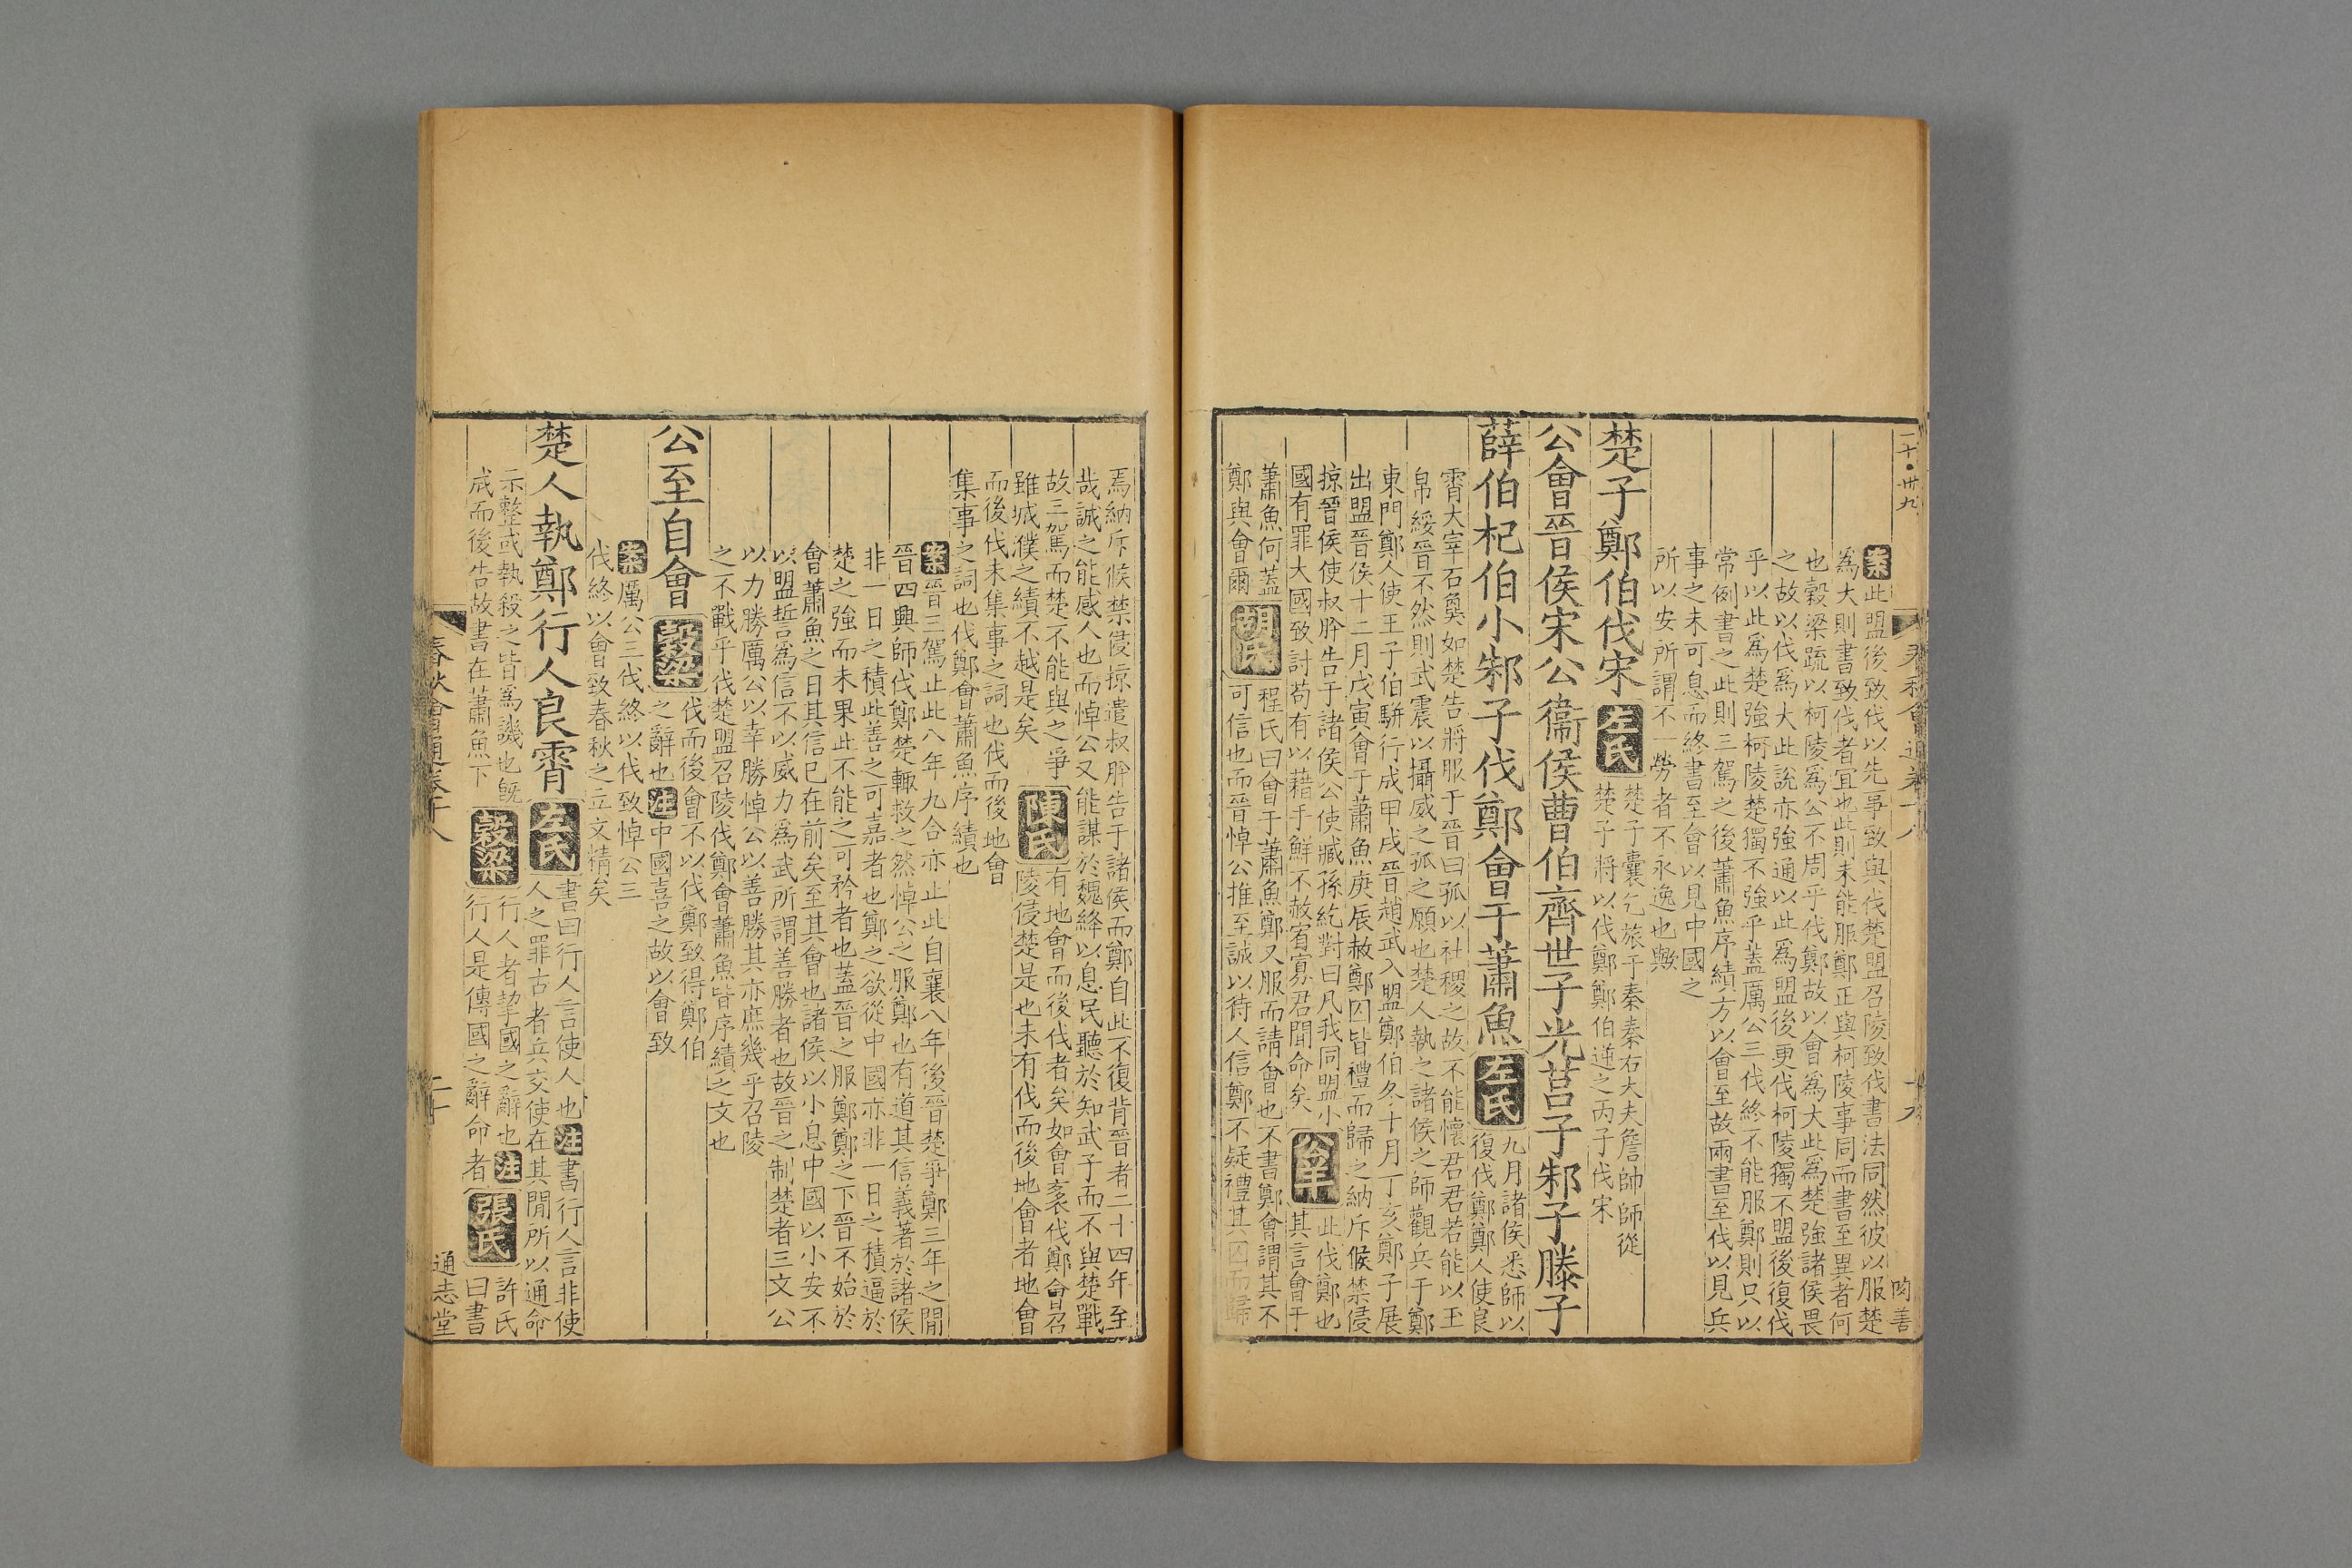 二十·卅九
肉善
案此盟後致伐以先事致與伐楚盟召陵致伐書法同然彼以服楚
爲大則書致伐者宜也此則未能服鄭正與柯陵事同而書至異者何
也穀梁疏以柯陵爲公不周乎伐鄭故以會爲大此爲楚強諸侯畏
之故以伐爲大此說亦強通以此爲盟後更伐柯陵獨不盟後復伐
乎以此爲楚強柯陵楚獨不強乎蓋厲公三伐終不能服鄭則只以
常例書之此則三駕之後蕭魚序績方以會至故兩書至伐以見兵
事之未可息而終書至會以見中國之
所以安所謂不一勞者不永逸也歟
楚子鄭伯伐宋
左氏
楚子囊乞旅于秦秦右大夫詹帥師從
楚子將以伐鄭鄭伯逆之丙子伐宋
公會晉侯宋公衞侯曹伯齊世子光莒子邾子滕子
薛伯杞伯小邾子伐鄭會于蕭魚
左氏
九月諸侯悉師以
復伐鄭鄭人使良
霄大宰石㚟如楚告將服于晉曰孤以社稷之故不能懷君君若能以玉
帛綏晉不然則武震以攝威之孤之願也楚人執之諸侯之師觀兵于鄭
東門鄭人使王子伯駢行成甲戌晉趙武入盟鄭伯冬十月丁亥鄭子展
出盟晉侯十二月戊寅會于蕭魚庚辰赦鄭囚皆禮而歸之納斥候禁侵
掠晉侯使叔肸告于諸侯公使臧孫紇對曰凡我同盟小
國有罪大國致討苟有以藉手鮮不赦宥寡君聞命矣
公羊
此伐鄭也
其言會于
蕭魚何蓋
鄭與會爾
胡氏
程氏曰會于蕭魚鄭又服而請會也不書鄭會謂其不
可信也而晉悼公推至誠以待人信鄭不疑禮其囚而歸
焉納斥候禁侵掠遣叔肸告于諸侯而鄭自此不復背晉者二十四年至
哉誠之能感人也而悼公又能謀於魏絳以息民聽於知武子而不與楚戰
故三駕而楚不能與之爭
雖城濮之績不越是矣
陳氏
有地會而後伐者矣如會袲伐鄭會召
陵侵楚是也未有伐而後地會者地會
而後伐未集事之詞也伐而後地會
集事之詞也伐鄭會蕭魚序績也
案晉三駕止此八年九合亦止此自襄八年後晉楚爭鄭三年之閒
晉四興師伐鄭楚輒救之然悼公之服鄭也有道其信義著於諸侯
非一日之積此善之可嘉者也鄭之欲從中國亦非一日之積逼於
楚之強而未果此不能之可矜者也蓋晉之服鄭鄭之下晉不始於
會蕭魚之日其信已在前矣至其會也諸侯以小息中國以小安不
以盟誓爲信不以威力爲武所謂善勝者也故晉之制楚者三文公
以力勝厲公以幸勝悼公以善勝其亦庶幾乎召陵
之不戰乎伐楚盟召陵伐鄭會蕭魚皆序績之文也
公至自會
穀梁
伐而後會不以伐鄭致得鄭伯
之辭也注中國喜之故以會致
案厲公三伐終以伐致悼公三
伐終以會致春秋之立文精矣
楚人執鄭行人良霄
左氏
書曰行人言使人也注書行人言非使
人之罪古者兵交使在其閒所以通命
示整或執殺之皆爲譏也旣
成而後告故書在蕭魚下
穀梁
行人者挈國之辭也注
行人是傳國之辭命者
張氏
許氏
曰書
春秋會通卷十八
二十
通志堂